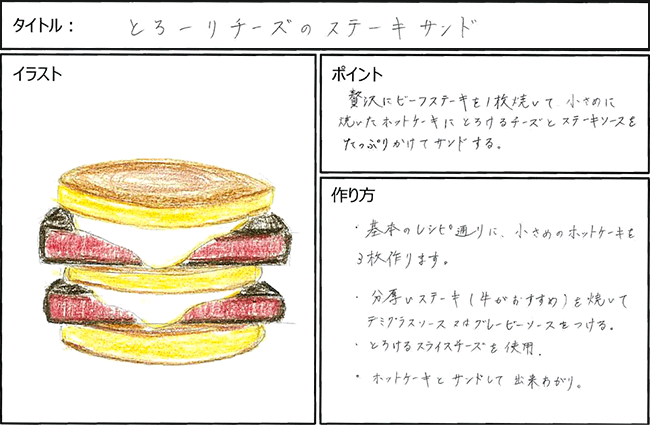 タイトル： とろーりチーズのステーキサンド
イラスト
ポイント
贅沢にビーフステーキを1枚焼いて 小さめに
焼いたホットケーキにとろけるチーズとステーキソースを
たっぷりかけてサンドする。
作り方
・基本のレシピ通りに、小さめのホットケーキを
3枚作ります。
・分厚いステーキ(牛がおすすめ)を焼いて
デミグラスソース又はグレービーソースをつける。
・とろけるスライスチーズを使用.
・ホットケーキとサンドして出来あがり。